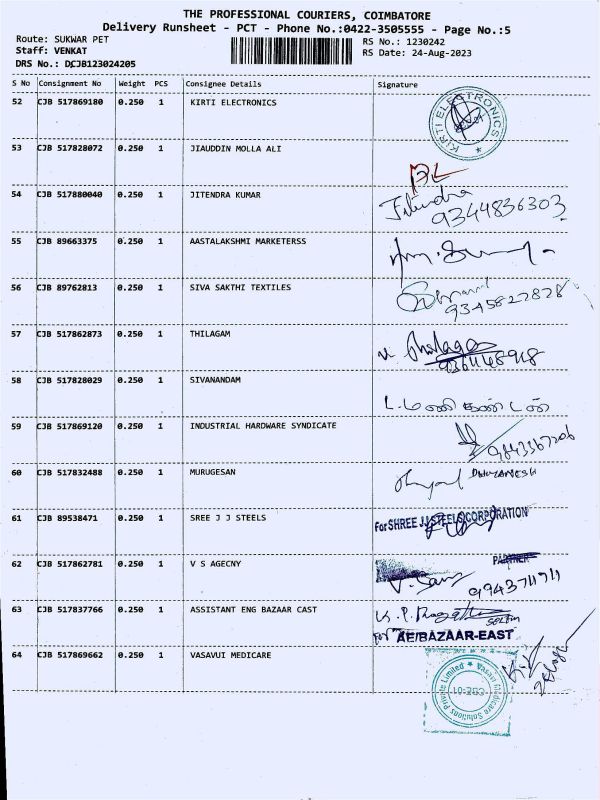 THE PROFESSIONAL COURIERS, COIMBATORE
Delivery Runsheet - PCT - Phone No.:0422-3505555 - Page No.:5
Route: SUKWAR PET
Staff: VENKAT
DRS No.: DCJB123024205
RS No.: 1230242
RS Date: 24-Aug-2023
S No Consignment No Weight PCS Consignee Details Signature
52 CJB 517869180 0.250 1 KIRTI ELECTRONICS
KIRTI ELECTRONICS
53 CJB 517828072 0.250 1 JIAUDDIN MOLLA ALI
54 CJB 517880040 0.250 1 JITENDRA KUMAR Jitendra
9344836303
55 CJB 89663375 0.250 1 AASTALAKSHMI MARKETERSS
56 CJB 89762813 0.250 1 SIVA SAKTHI TEXTILES
9345827828
57 CJB 517862873 0.250 1 THILAGAM
58 CJB 517828029 0.250 1 SIVANANDAM
டட. மணி கண்டன்
59 CJB 517869120 0.250 1 INDUSTRIAL HARDWARE SYNDICATE
60 CJB 517832488 0.250 1 MURUGESAN DHYANESH
61 CJB 89538471 0.250 1 SREE J J STEELS For SHREE JJ STEELS CORPORATION
PARTNER
62 CJB 517862781 0.250 1 V S AGECNY
63 CJB 517837766 0.250 1 ASSISTANT ENG BAZAAR CAST
for AE/BAZAAR-EAST
64 CJB 517869662 0.250 1 VASAVUI MEDICARE
Vasavi Medicare Solutions Private Limited